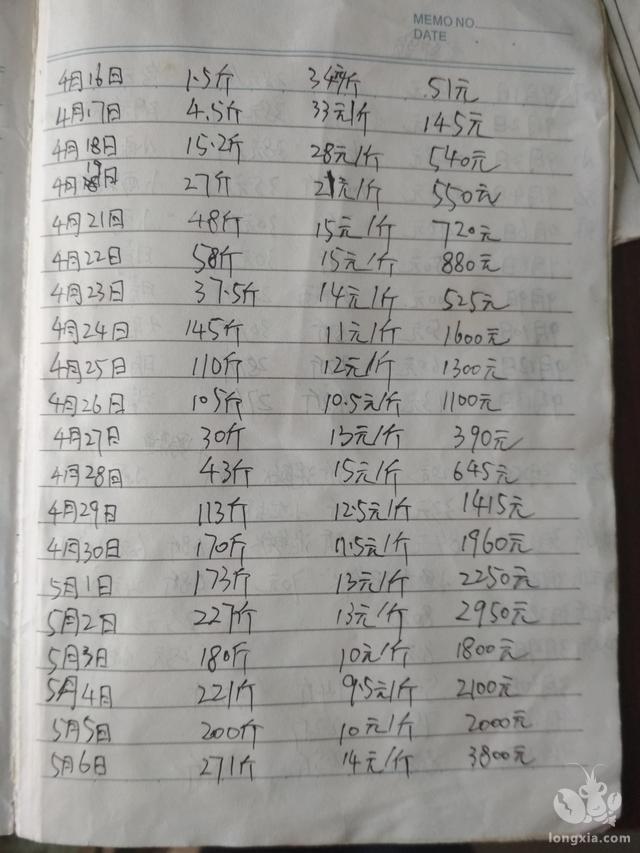 MEMO NO.
DATE
4月16日 1.5斤 34元/斤 51元
4月17日 4.5斤 33元/斤 145元
4月18日 15.2斤 28元/斤 540元
4月19日 27斤 21元/斤 550元
4月21日 48斤 15元/斤 720元
4月22日 58斤 15元/斤 880元
4月23日 37.5斤 14元/斤 525元
4月24日 145斤 11元/斤 1600元
4月25日 110斤 12元/斤 1300元
4月26日 105斤 10.5元/斤 1100元
4月27日 30斤 13元/斤 390元
4月28日 43斤 15元/斤 645元
4月29日 113斤 12.5元/斤 1415元
4月30日 170斤 11.5元/斤 1960元
5月1日 173斤 13元/斤 2250元
5月2日 227斤 13元/斤 2950元
5月3日 180斤 10元/斤 1800元
5月4日 221斤 9.5元/斤 2100元
5月5日 200斤 10元/斤 2000元
5月6日 271斤 14元/斤 3800元
longxia.com